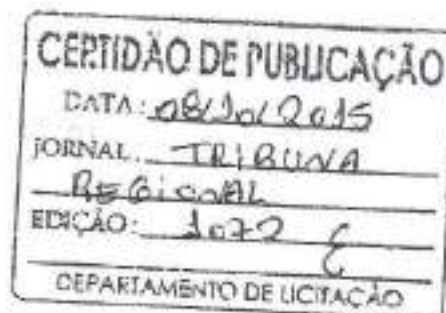 CERTIDÃO DE PUBLICAÇÃO
DATA: 08/10/2015
JORNAL: TRIBUNA
REGIONAL
EDIÇÃO: 1072
DEPARTAMENTO DE LICITAÇÃO